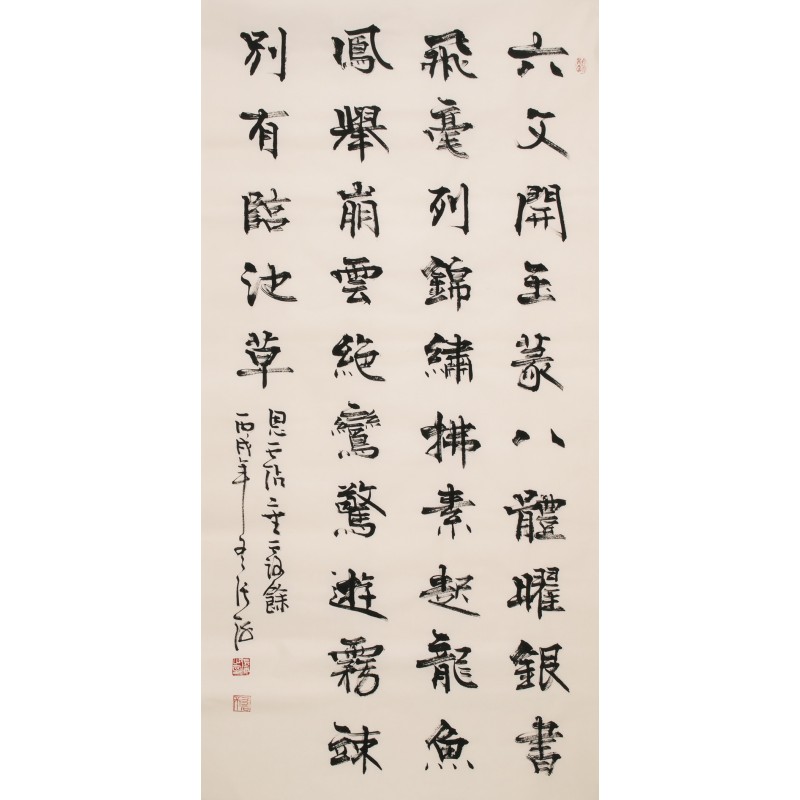 六文開玉篆八體曜銀書
飛毫列錦繡拂素起龍魚
鳳舉崩雲絕鸞驚遊霧疎
別有臨池草
恩霑垂露餘
丙戌年